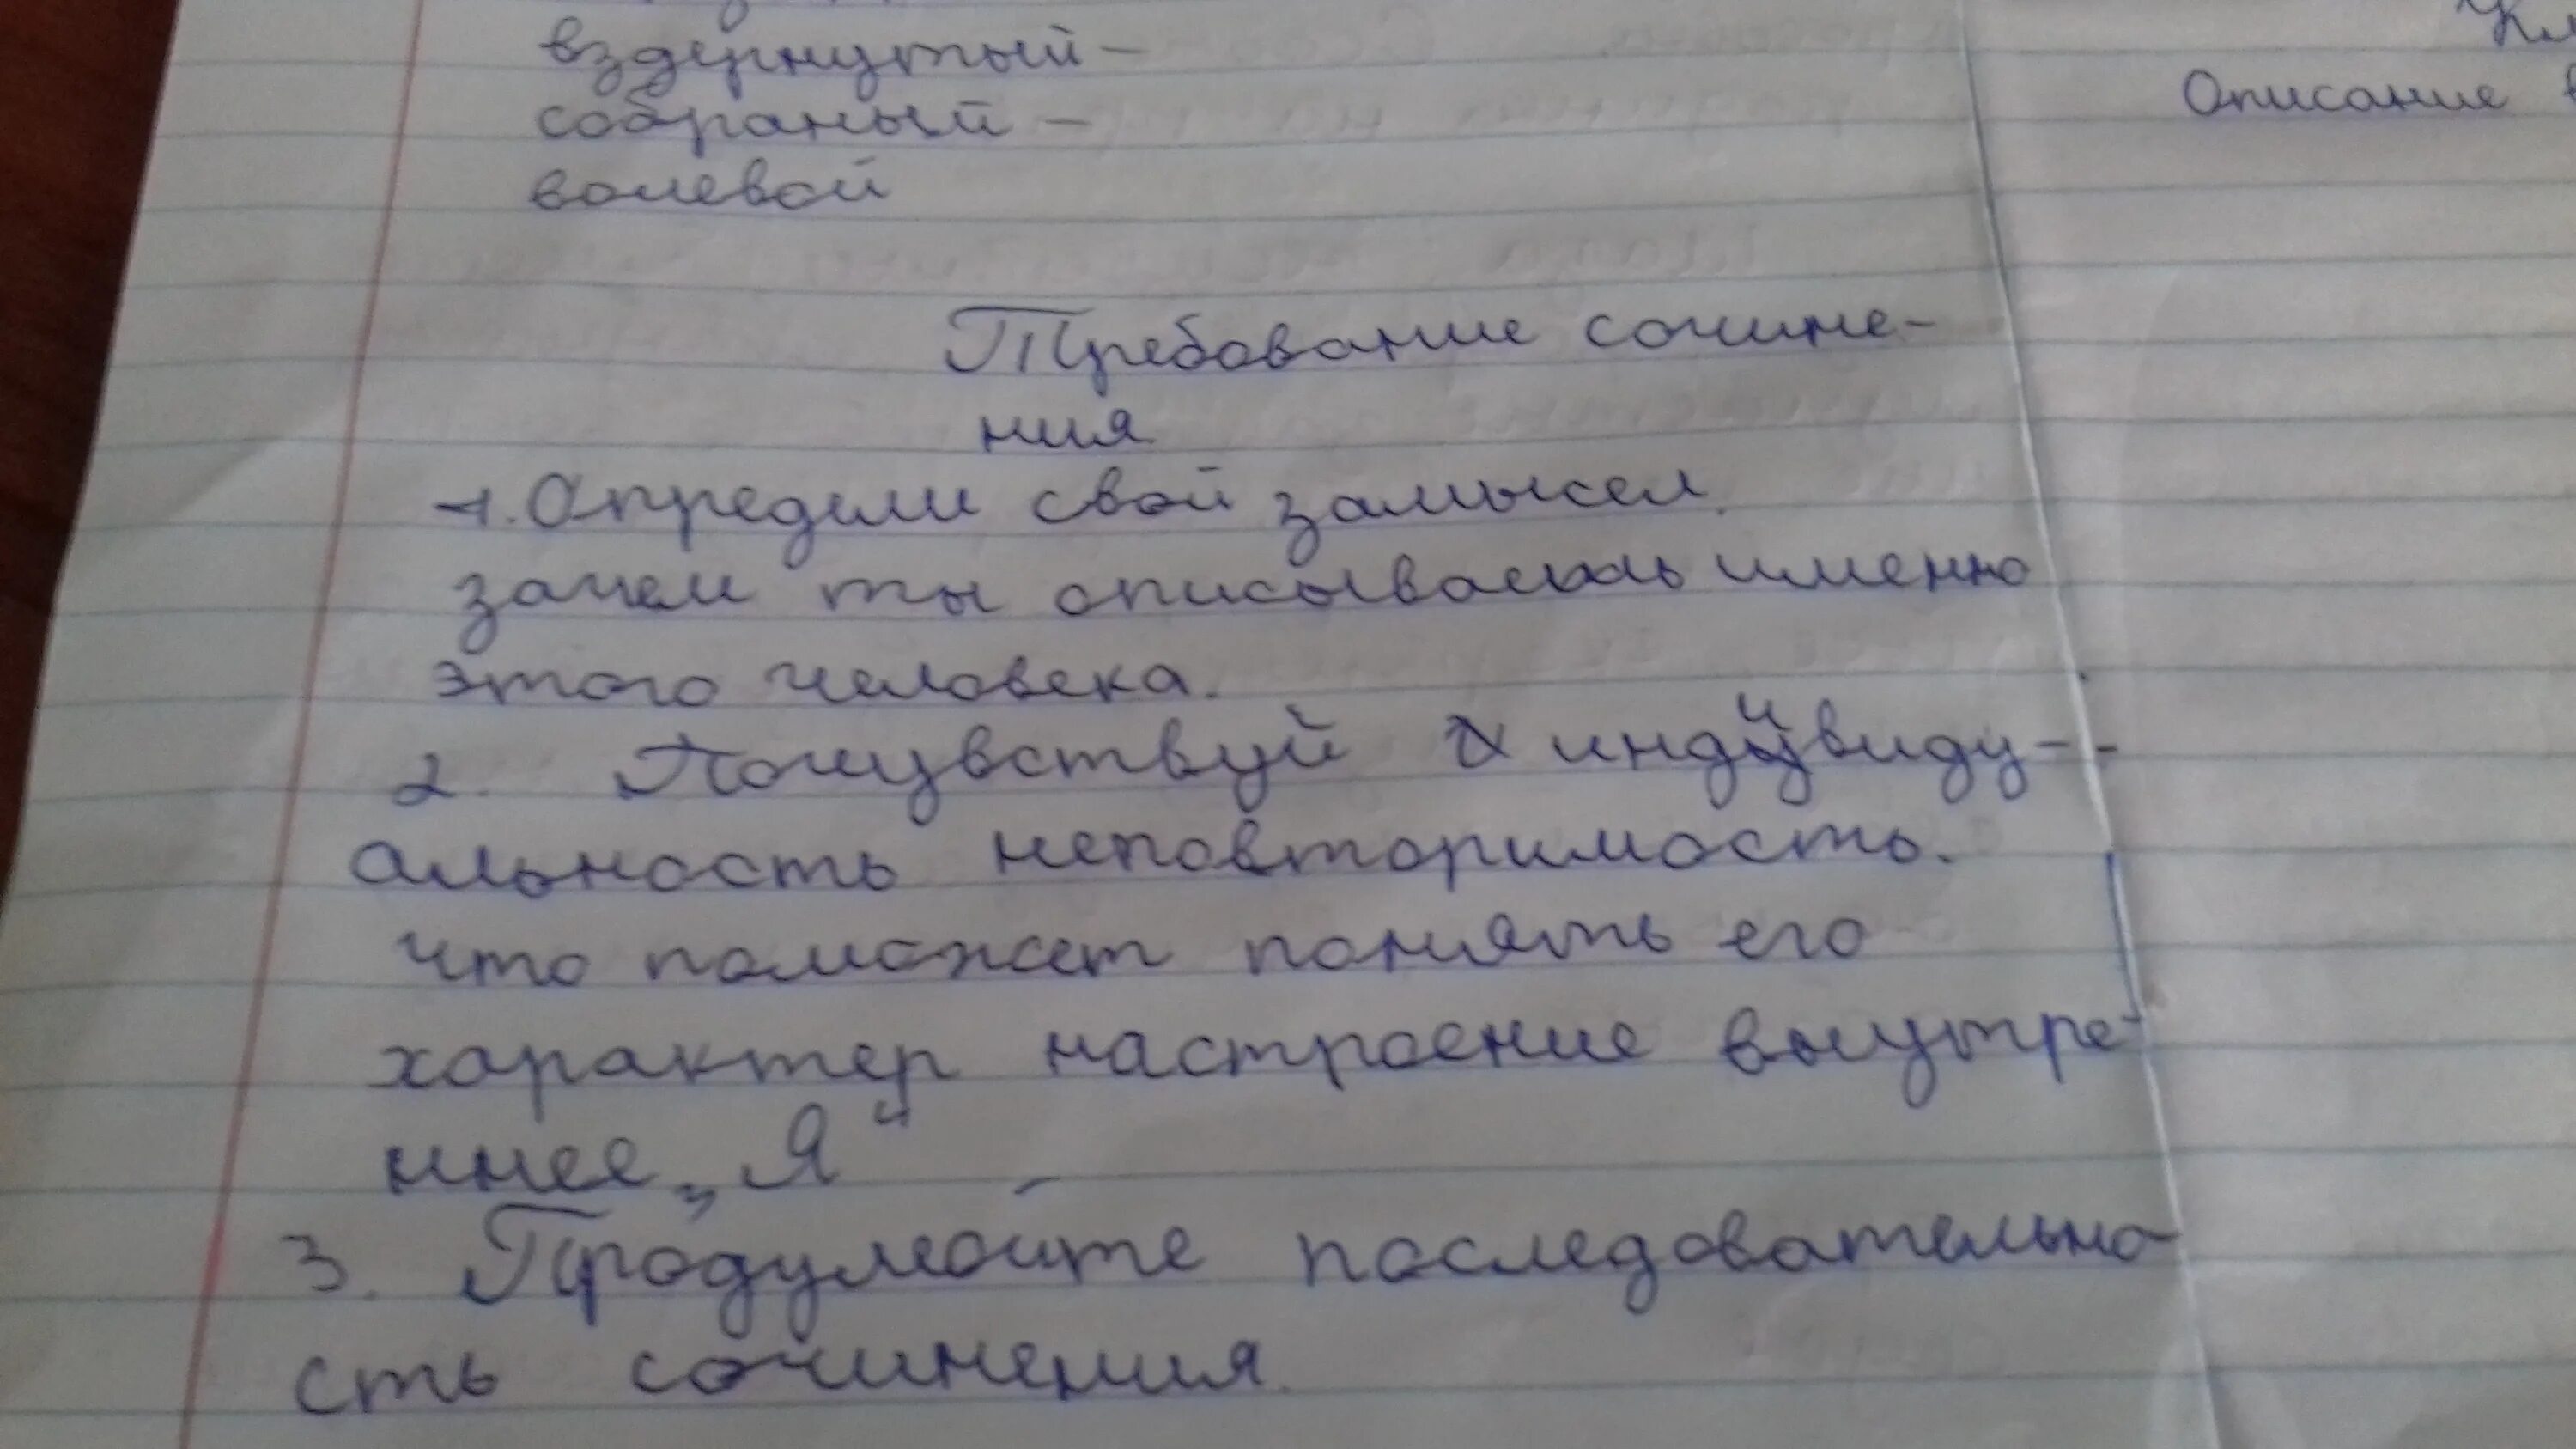 вздернутый -
собраный -
волевой
Требование сочине-
ния
1. Определи свой замысел.
зачем ты описываешь именно
этого человека.
2. Почувствуй индивиду-
альность неповторимость.
что поможет понять его
характер настроение внутре-
ннее „Я“
3. Продумайте последовательно-
сть сочинения.
Описание